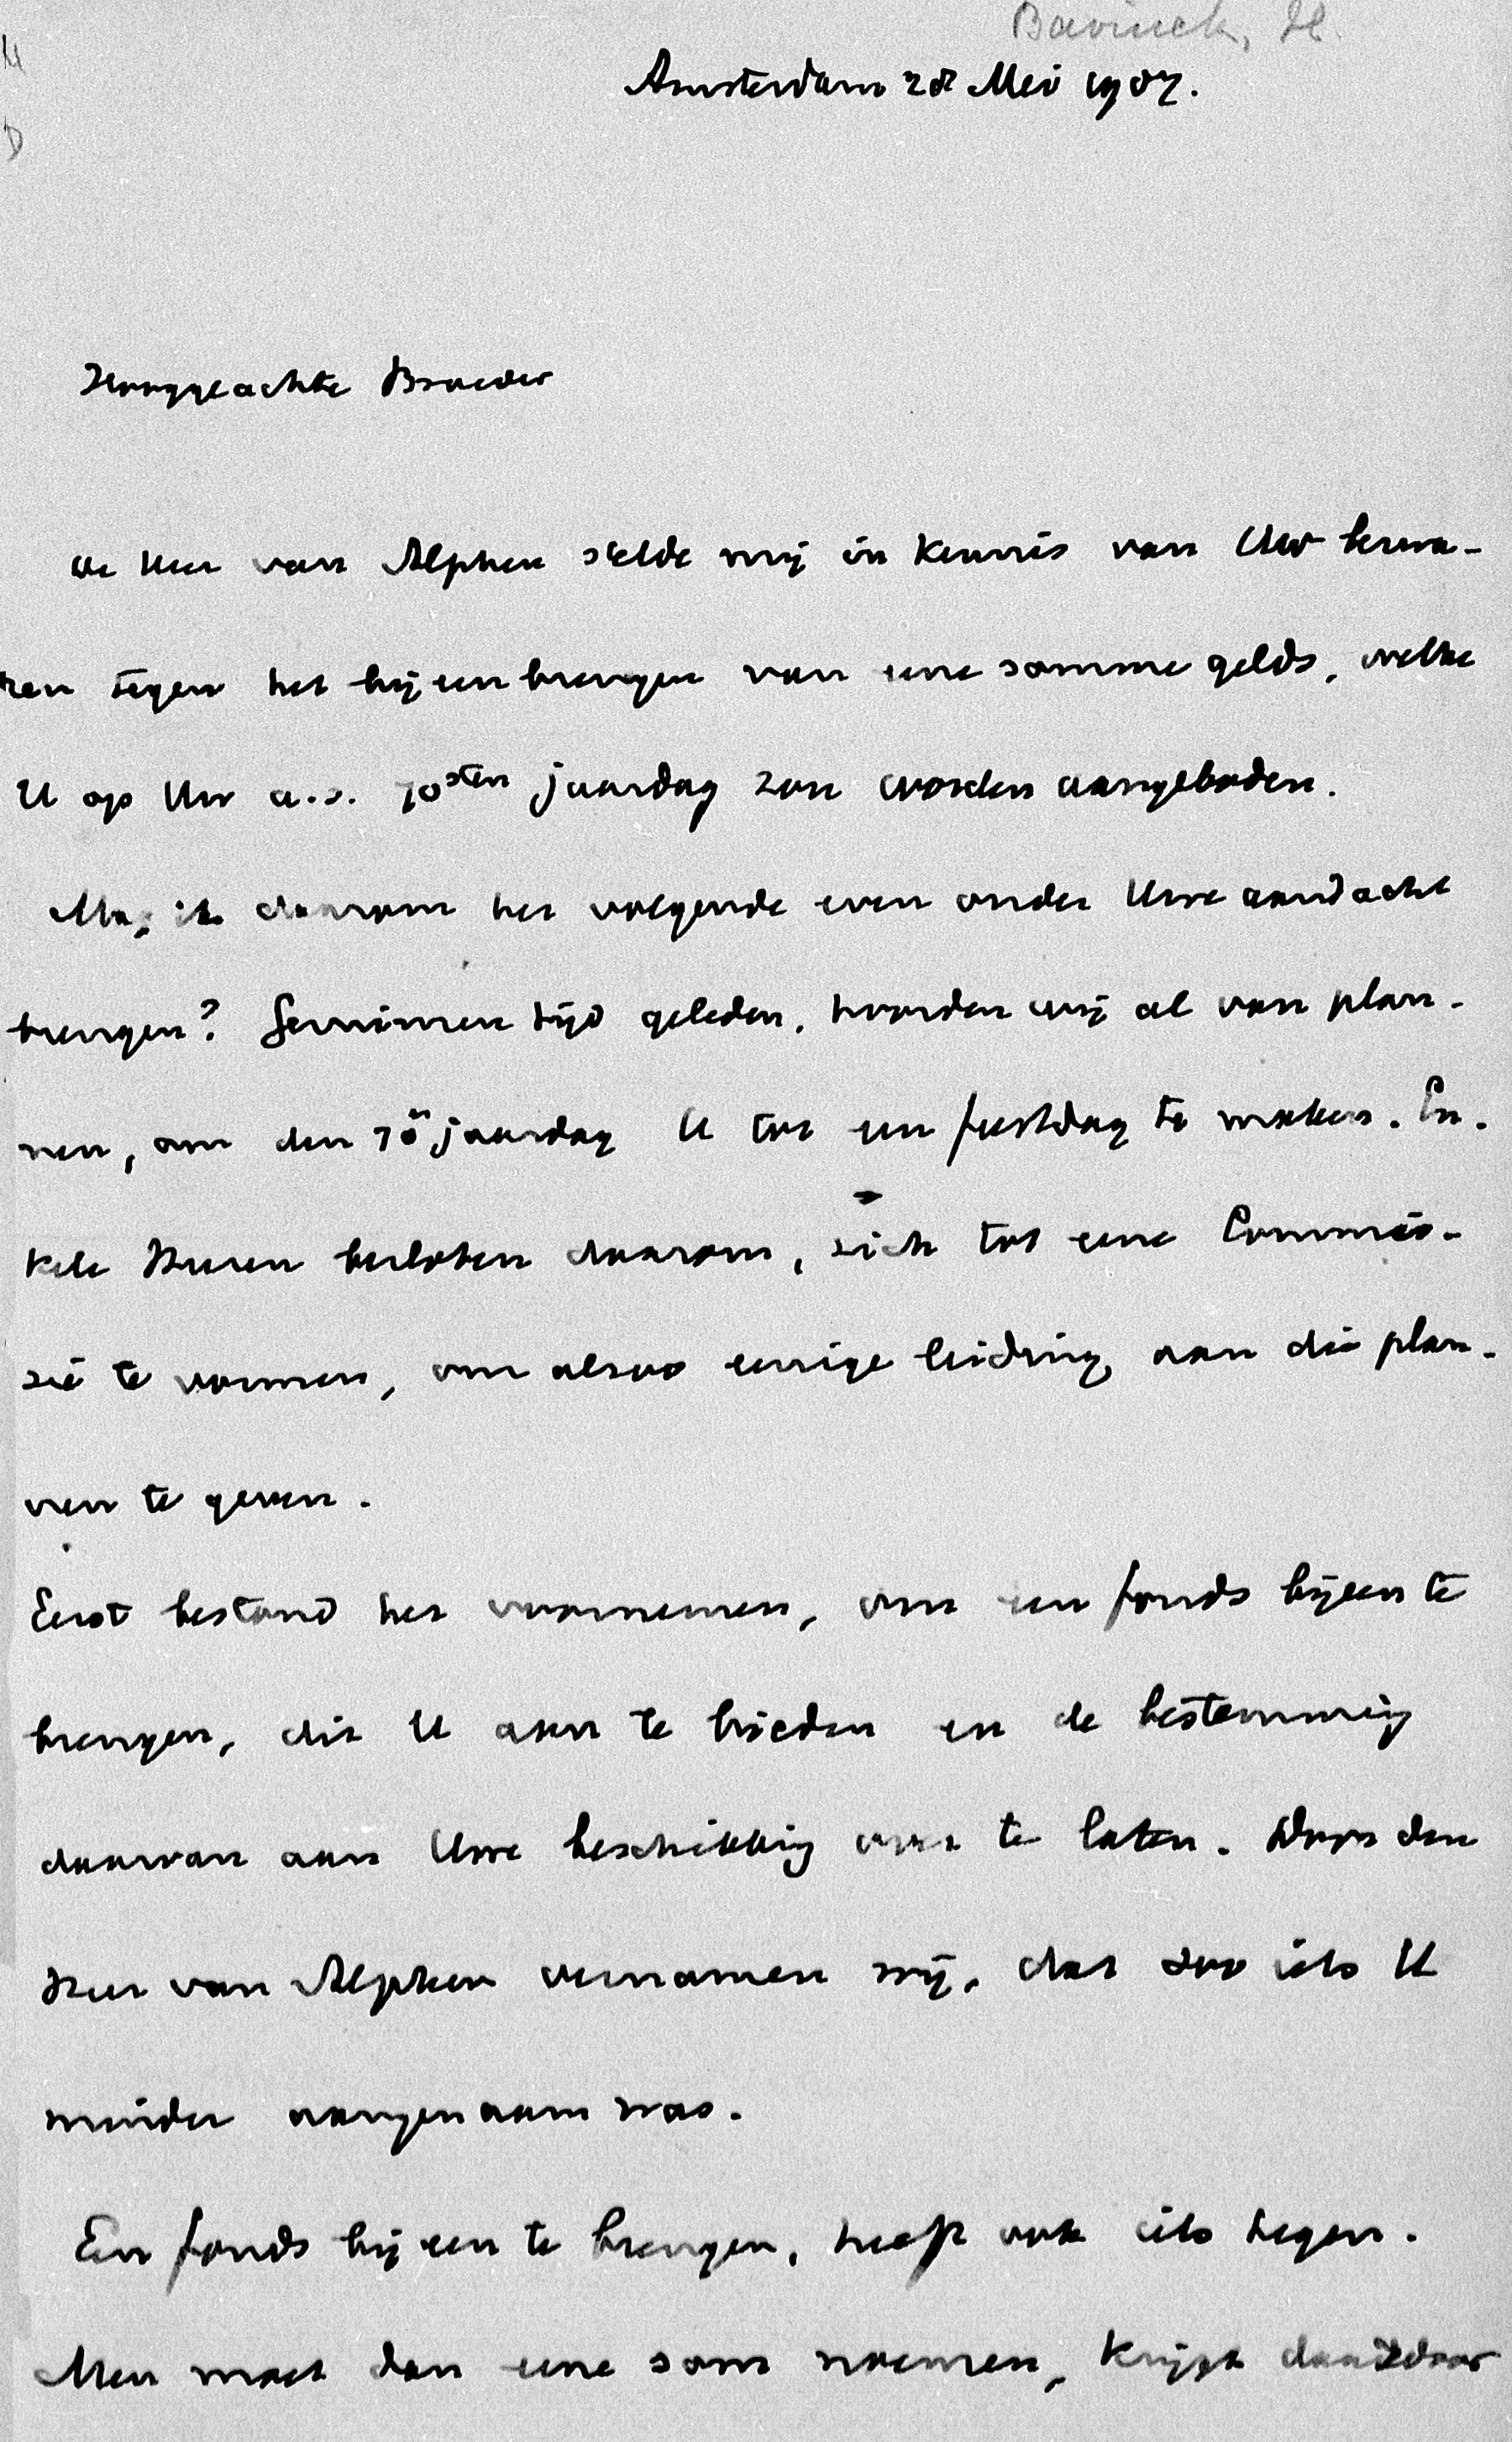 Bavinck, H.
Amsterdam 28 Mei 1907.
Hooggeachte Broeder
de Heer van Alphen stelde mij in kennis van Uw bezwa-
ren tegen het bijeenbrengen van eene somme gelds, welke
U op Uw a.s. 70sten jaardag zou worden aangeboden.
Mag ik daarom het volgende even onder Uwe aandacht
brengen? Geruimen tijd geleden, hoorden wij al van plan-
nen, om den 70en jaardag U tot een feestdag te maken. En-
kele Heeren besloten daarom, zich tot eene Commis-
sie te vormen, om alzoo eenige leiding aan die plan-
nen te geven.
Eerst bestond het voornemen, om een fonds bijeen te
brengen, dit U aan te bieden en de bestemming
daarvan aan Uwe beschikking over te laten. Door den
Heer van Alphen vernamen wij, dat zoo iets U
minder aangenaam was.
Een fonds bijeen te brengen, heeft ook iets tegen.
Men moet dan eene som noemen, krijgt daardoor